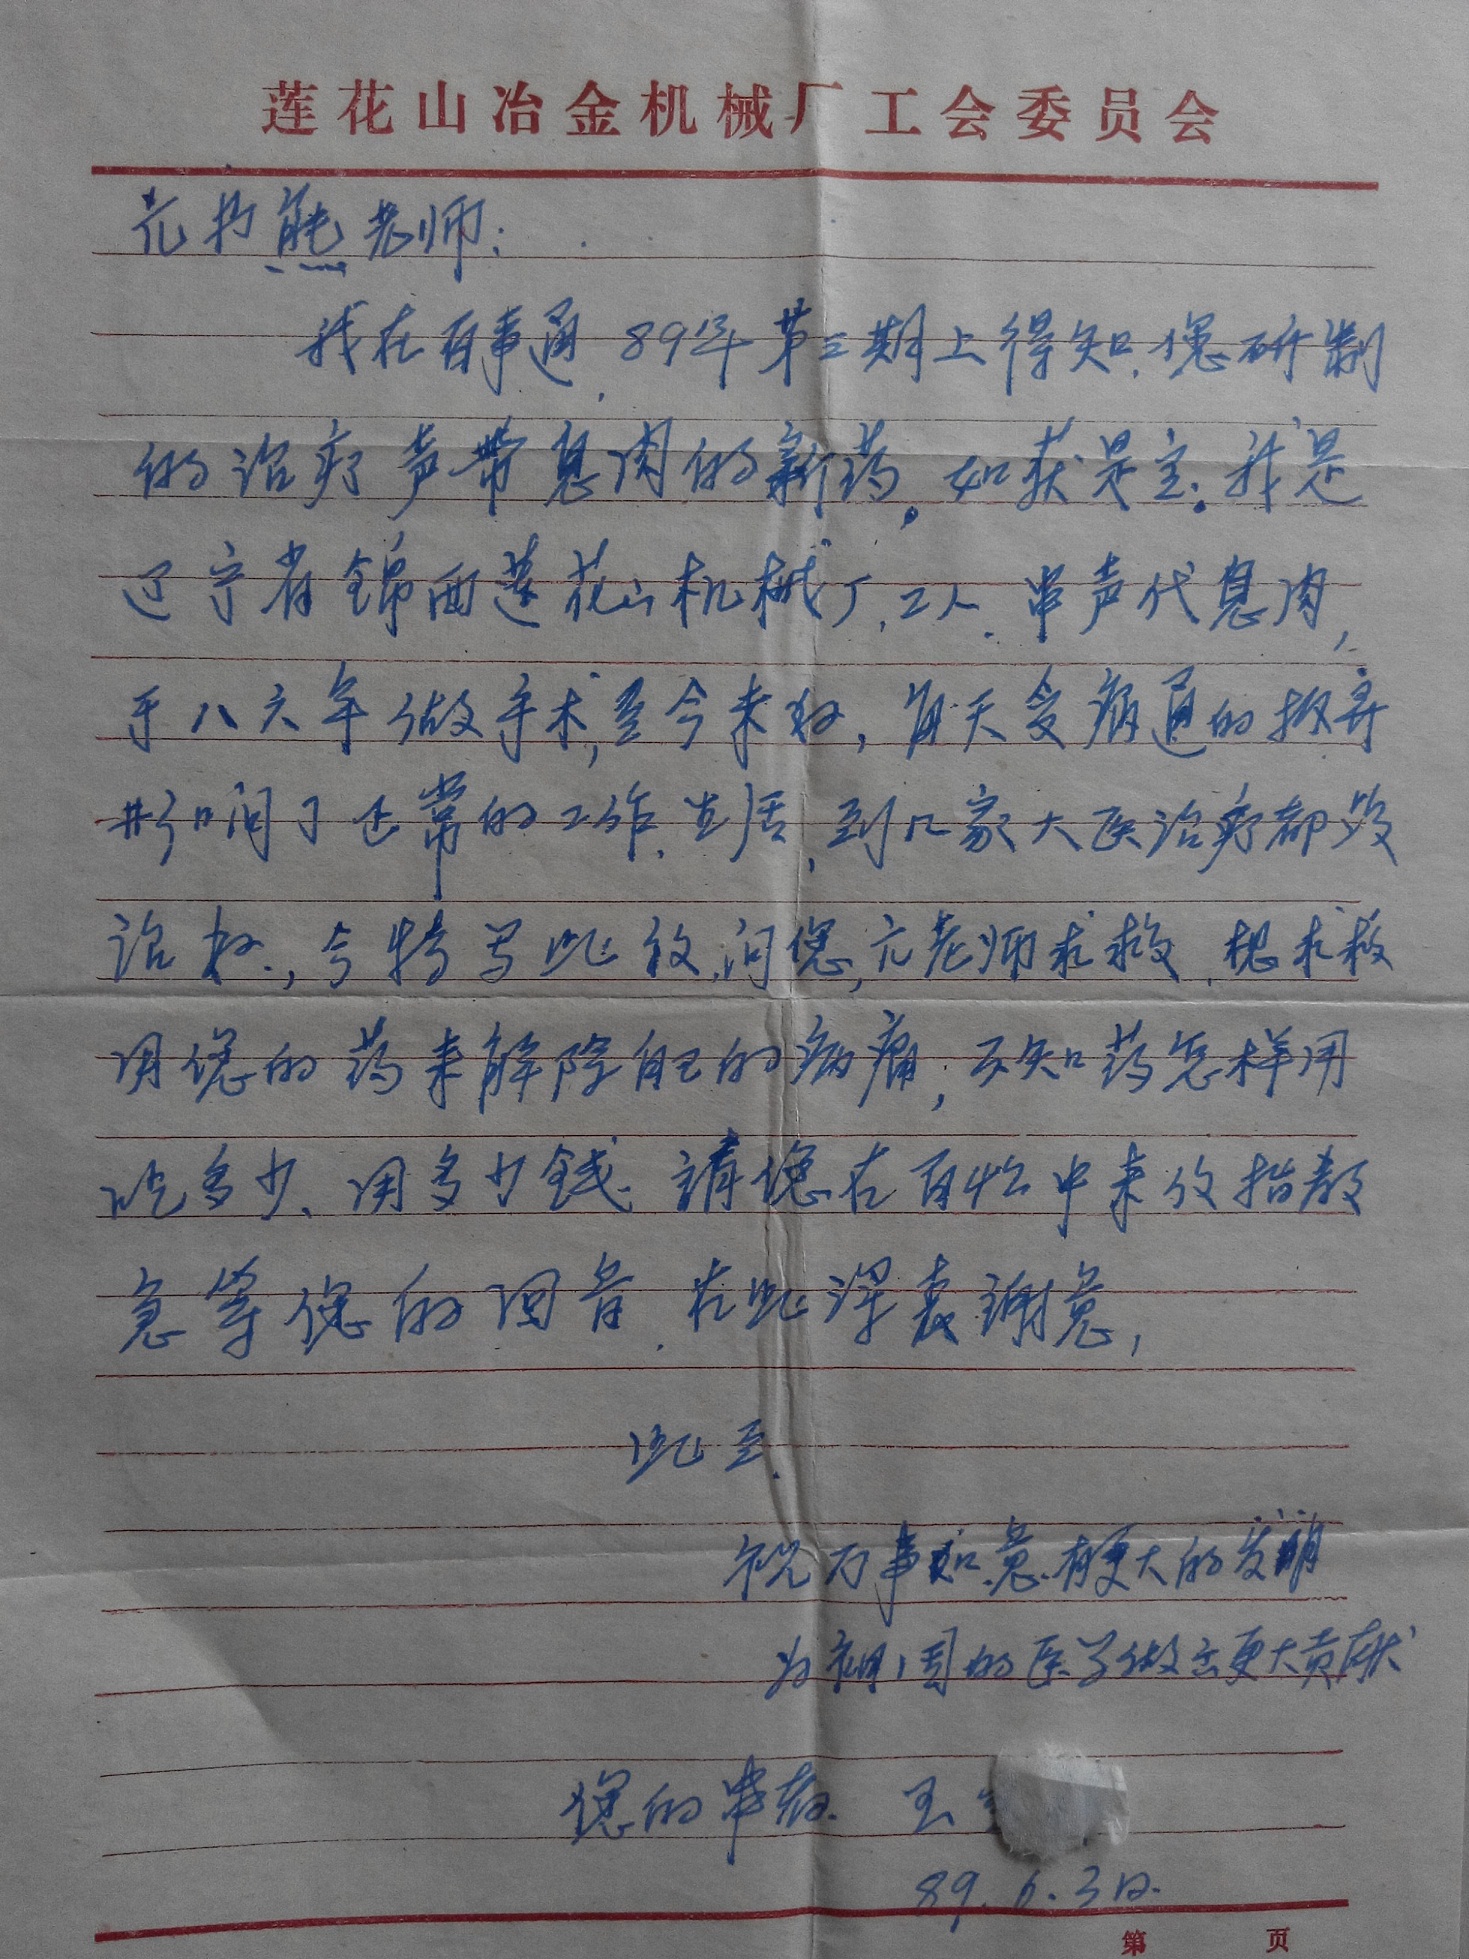 莲花山冶金机械厂工会委员会
亢书熊老师:
我在百事通,89年第三期上得知,您研制
的治疗声带息肉的新药。如获是宝。我是
辽宁省锦西莲花山机械厂,工人。患声代息肉,
于八六年做手术,至今未好,每天受病
影响了正常的工作、生活,到几家大医治疗都没
治好,今特写此致,向您,亢老师求救,想求救
用您的药来解除自己的病痛,不知药怎样用
吃多少、用多少钱、請您在百忙中来信指教
急等您的回音,在此深表谢意,
此至。
祝万事如意、有更大的发明
为祖国的医学做出更大贡献
您的患者、王
89.6.3日.
第 页